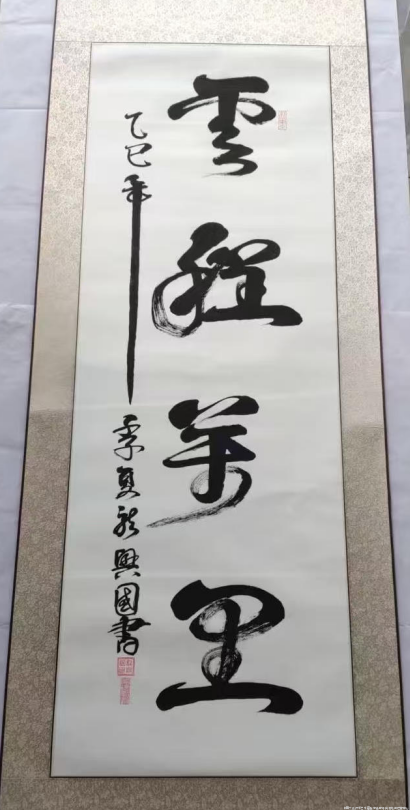 雲程萬里
乙巳年季夏龍興國書